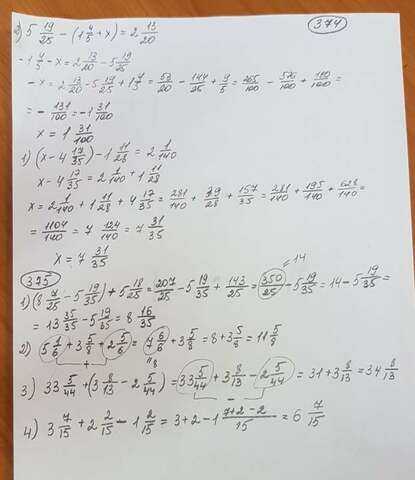 374
2) 5 19/25 - (1 4/5 + x) = 2 13/20
-1 4/5 - x = 2 13/20 - 5 19/25
-x = 2 13/20 - 5 19/25 + 1 4/5 = 53/20 - 144/25 + 9/5 = 265/100 - 576/100 + 180/100 =
= - 131/100 = -1 31/100
x = 1 31/100
1) (x - 4 17/35) - 1 11/28 = 2 1/140
x - 4 17/35 = 2 1/140 + 1 11/28
x = 2 1/140 + 1 11/28 + 4 17/35 = 281/140 + 39/28 + 157/35 = 281/140 + 195/140 + 628/140 =
= 1104/140 = 7 124/140 = 7 31/35
x = 7 31/35
375
1) (8 7/25 - 5 19/35) + 5 18/25 = 207/25 - 5 19/35 + 143/25 = 350/25 - 5 19/35 = 14 - 5 19/35 =
= 14
= 13 35/35 - 5 19/35 = 8 16/35
2) 5 1/6 + 3 5/8 + 2 5/6 = 7 6/6 + 3 5/8 = 8 + 3 5/8 = 11 5/8
+
8
3) 33 5/44 + (3 8/13 - 2 5/44) = 33 5/44 + 3 8/13 - 2 5/44 = 31 + 3 8/13 = 34 8/13
-
4) 3 7/15 + 2 2/15 - 1 2/15 = 3 + 2 - 1 7+2-2/15 = 6 7/15